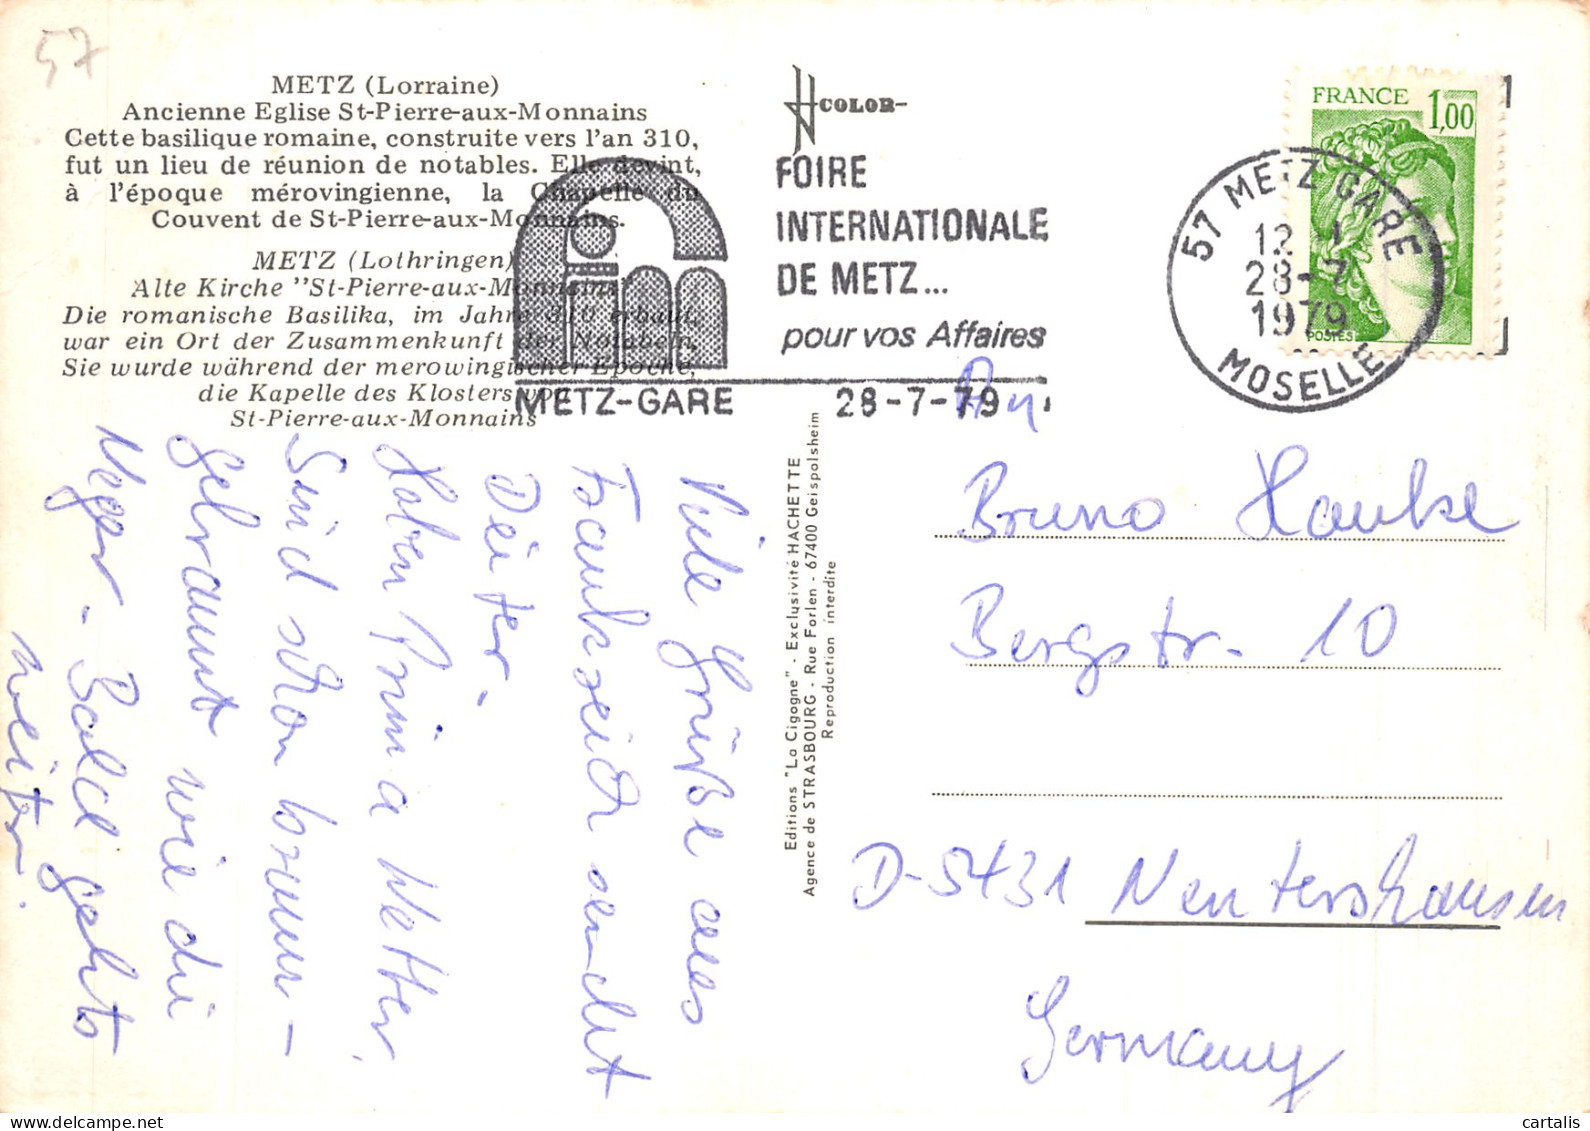 57
METZ (Lorraine)
Ancienne Eglise St-Pierre-aux-Monnains
Cette basilique romaine, construite vers l'an 310,
fut un lieu de réunion de notables. Elle devint,
à l'époque mérovingienne, la Chapelle du
Couvent de St-Pierre-aux-Monnains.
METZ (Lothringen)
Alte Kirche "St-Pierre-aux-Monnains"
Die romanische Basilika, im Jahre 310 erbaut,
war ein Ort der Zusammenkunft der Notabeln.
Sie wurde während der merowingischer Epoche,
die Kapelle des Klosters von
St-Pierre-aux-Monnains
COLOR
fim
FOIRE
INTERNATIONALE
DE METZ...
pour vos Affaires
METZ-GARE 28-7-79
FRANCE 1,00
POSTES
57 METZ GARE
12 H
28-7
1979
MOSELLE
Viele Grüße aus
Frankreich sendet
Dieter.
Haben Prima Wetter.
Sind schon braun-
gebrannt wie die
Neger. Bald gehts
weiter.
Editions "La Cigogne" - Exclusivité HACHETTE
Agence de STRASBOURG - Rue Forlen - 67400 Geispolsheim
Reproduction interdite
An
Bruno Hanke
Bergstr. 10
D-5431 Nentershausen
Germany
cartalis
delcampe.net